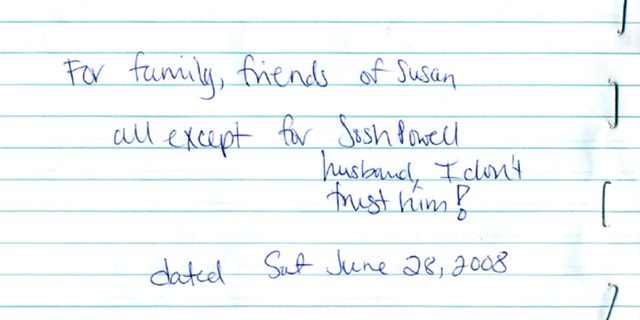 For family, friends of Susan
all except for Josh Powell
husband, I don't
trust him!
dated Sat June 28, 2008